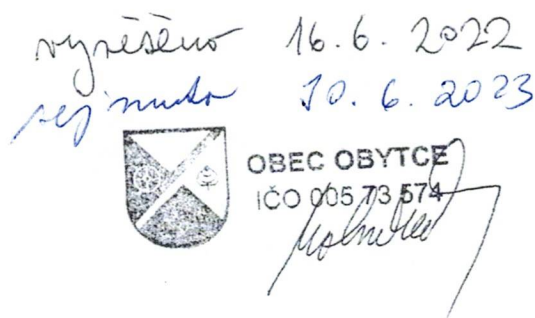 vyvěšeno 16.6.2022
sejmuto 10.6.2023
OBEC OBYTCE
IČO 005 73 574